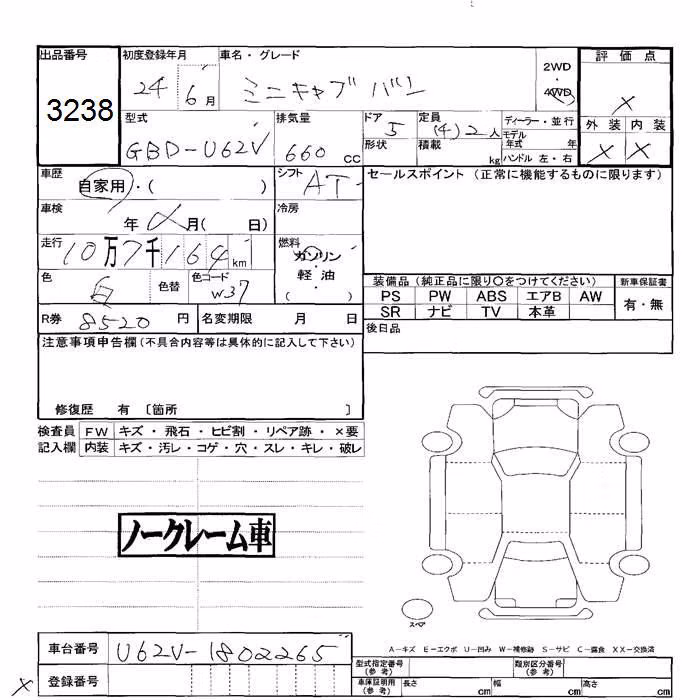 出品番号 初度登録年月 車名・グレード 2WD ・ 4WD 評価点
3238 24 6月 ミニキャブ バン ×
型式 排気量 ドア 定員 ディーラー・並行 外装 内装
GBD-U62V 660 cc 5 (4) 2人 モデル年式 年 × ×
形状 積載 kg ハンドル 左・右
車歴 自家用・( ) シフト AT セールスポイント (正常に機能するものに限ります)
車検 年 月( 日) 冷房
走行 10万7千164km 燃料 ガソリン・軽油 ( )
色 白 色替 色コード W37
装備品 (純正品に限り○をつけてください) 新車保証書
PS PW ABS エアB AW 有・無
SR ナビ TV 本革
R券 8520円 名変期限 月 日 後日品
注意事項申告欄 (不具合内容等は具体的に記入して下さい)
修復歴 有 〔箇所 〕
検査員 FW キズ・飛石・ヒビ割・リペア跡・×要
記入欄 内装 キズ・汚レ・コゲ・穴・スレ・キレ・破レ
ノークレーム車
スペア
A-キズ E-エクボ U-凹み W-補修跡 S-サビ C-腐食 XX-交換済
車台番号 U62V-1802265 型式指定番号 (参考) 類別区分番号 (参考)
× 登録番号 車庫証明用 (参考) 長さ cm 幅 cm 高さ cm